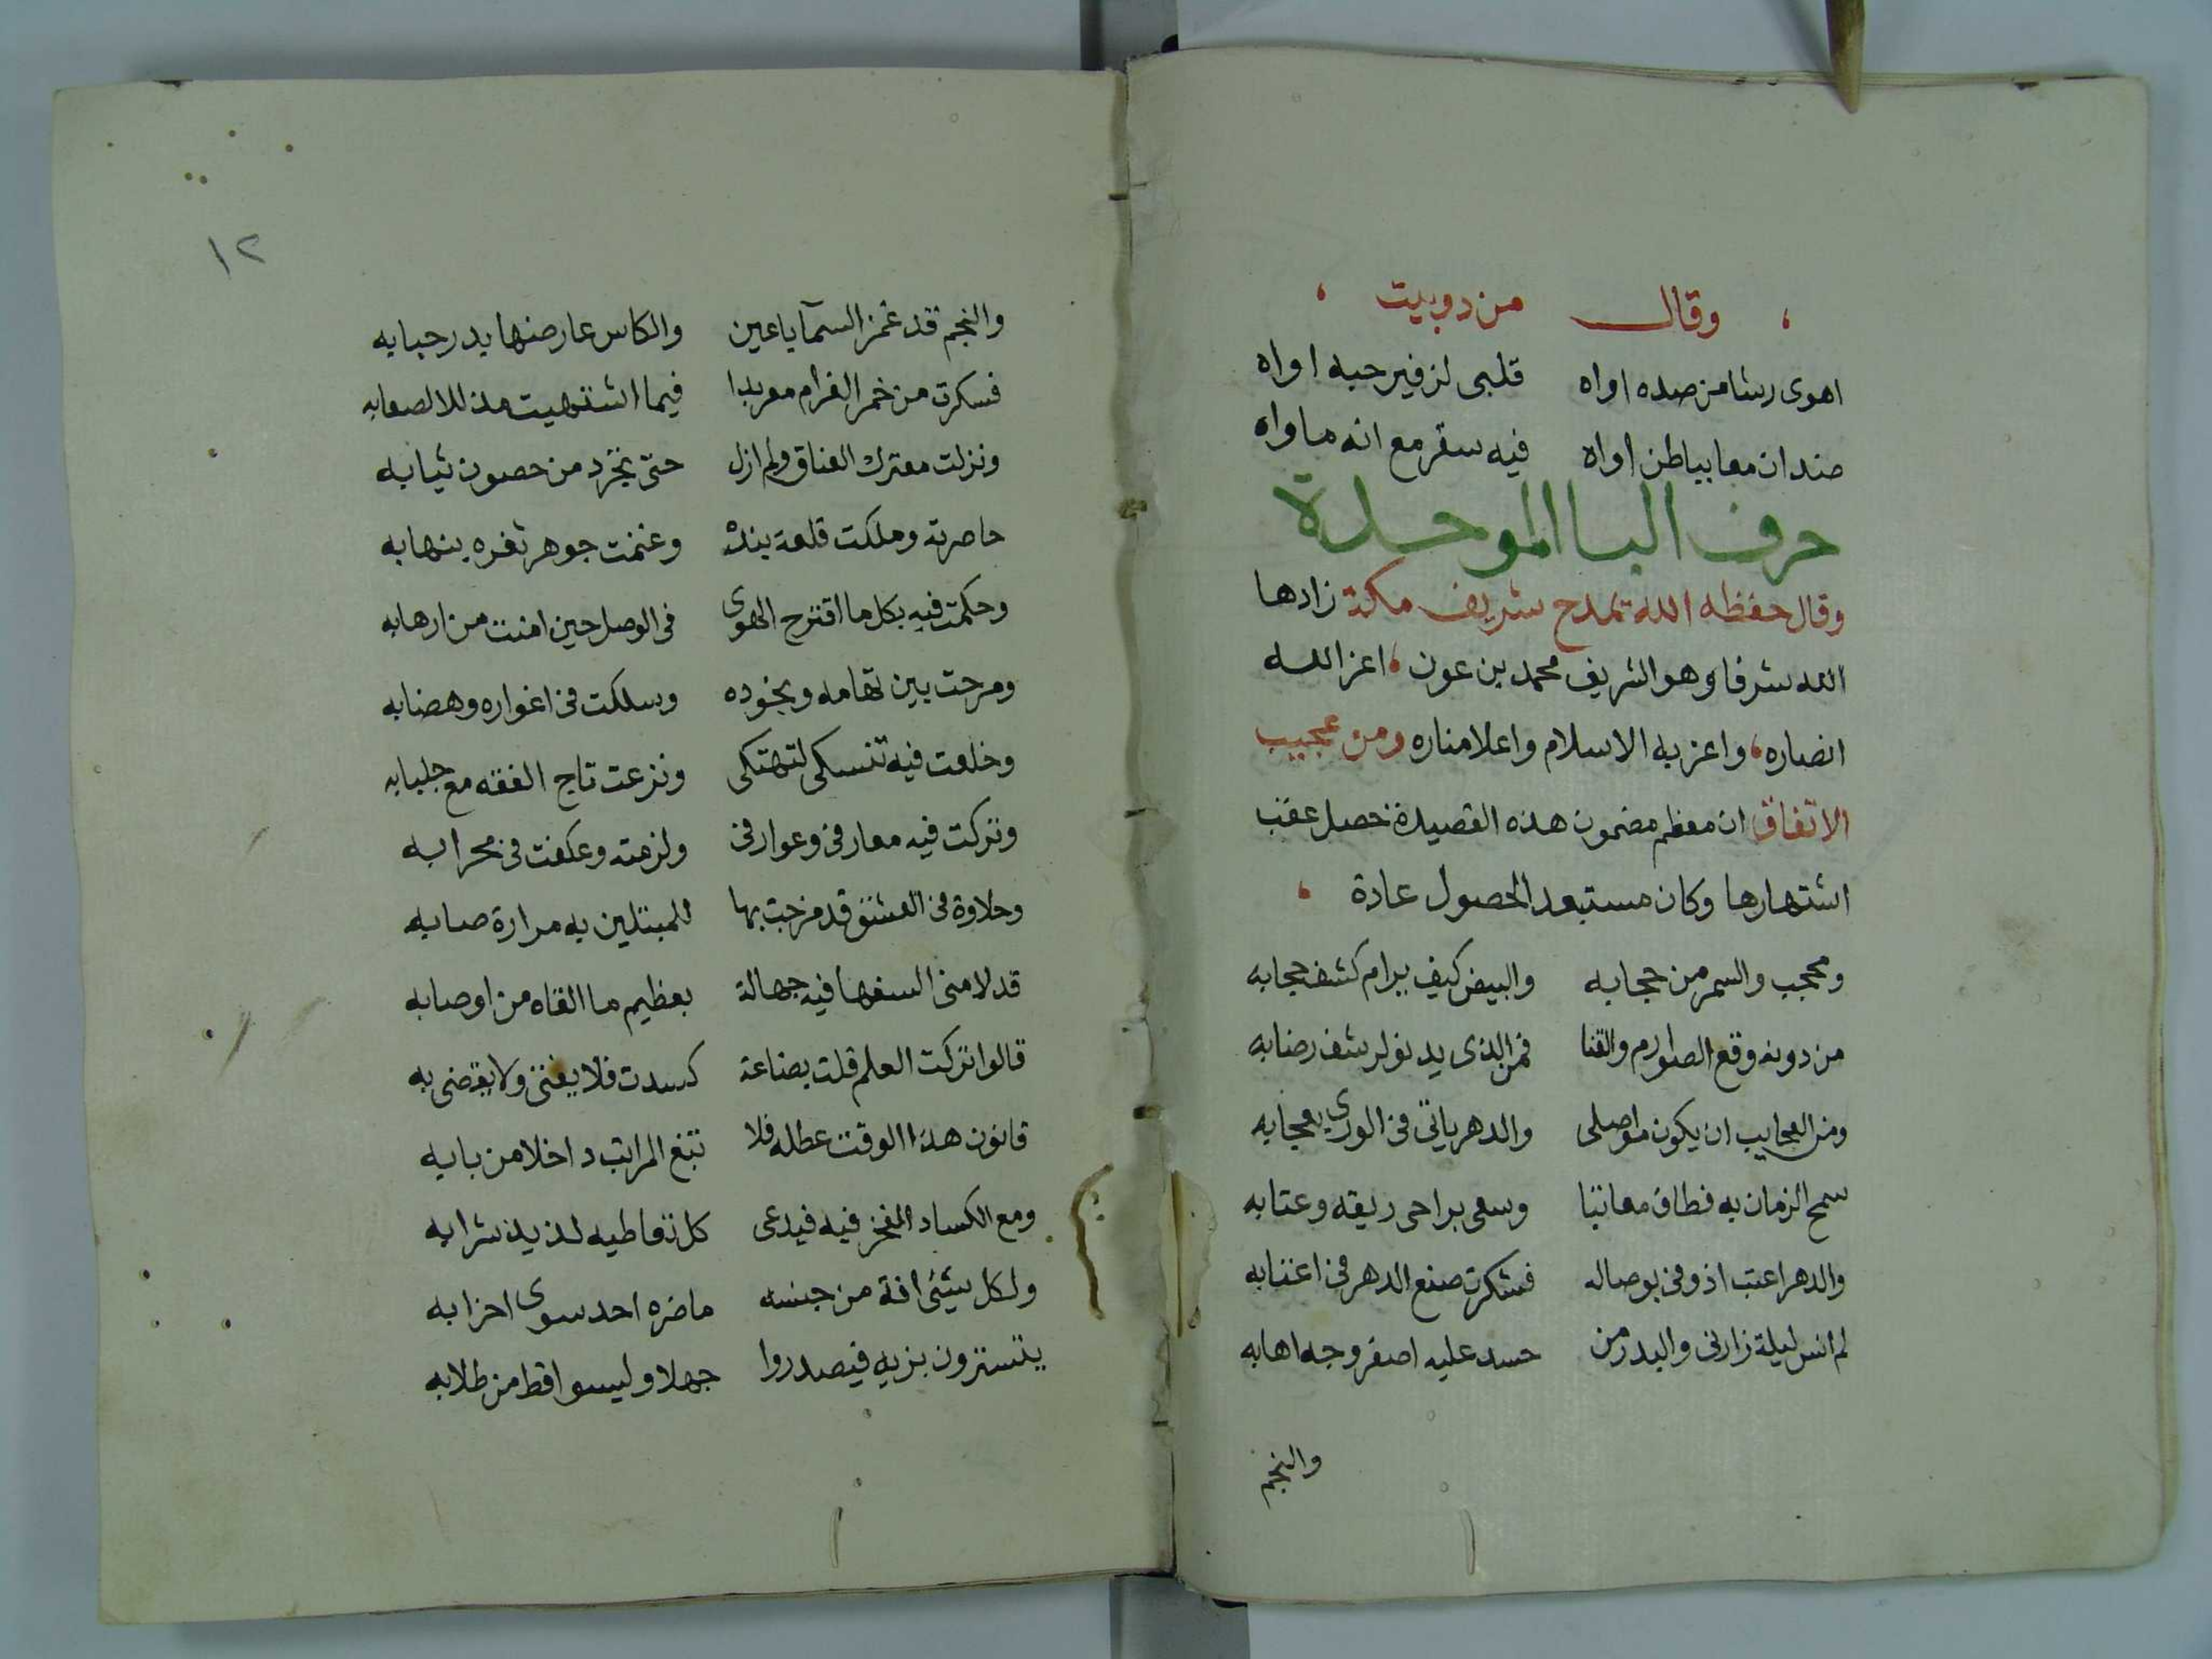 وقال من دوبيت
اهوى رشا من صده اواه قلبى لزفير حبه اواه
ضدان معا بباطن اواه فيه سقر مع انه ماواه
حرف البا الموحدة
وقال حفظه الله يمدح شريف مكة زادها
الله شرفا وهو الشريف محمد بن عون اعز الله
انصاره واعز به الاسلام واعلا مناره ومن عجيب
الاتفاق ان معظم مضمون هذه القصيدة حصل عقب
اشتهارها وكان مستبعد الحصول عادة
ومحجب والسمر من حجابه والبيض كيف يرام كشف حجابه
من دونه وقع الصوارم والقنا فمن الذى يدنو لرشف رضابه
ومن العجايب ان يكون مواصلى والدهر ياتى فى الورى بعجابه
سمح الزمان به فطاف معاتبا وسعى براحى ريقه وعتابه
والدهر اعتب اذ وفى بوصاله فشكرت صنع الدهر فى اعتابه
لم انس ليلة زارنى والبدر من حسد عليه اصفر وجه اهابه
والنجم
١٢
والنجم قد غمز السمآ باعين والكاس عارضها بدر حبابه
فسكرت من خمر الغرام معربدا فيما اشتهيت مذللا لصعابه
ونزلت معترك العناق ولم ازل حتى تجرد من حصون ثيابه
حاصرته وملكت قلعة بنده وغنمت جوهر ثغره بنهابه
وحكمت فيه بكل ما اقترح الهوى فى الوصل حين امنت من ارهابه
ومرحت بين تهامه ونجوده وسلكت فى اغواره وهضابه
وخلعت فيه تنسكى لتهتكى ونزعت تاج الفقه مع جلبابه
وتركت فيه معارفى وعوارفى ولزمته وعكفت فى محرابه
وحلاوة فى العشق قد مزجت بها للمبتلين به مرارة صابه
قد لامنى السفها فيه جهالة بعظيم ما القاه من اوصابه
قالوا تركت العلم قلت بضاعة كسدت فلا يفتى ولا يقضى به
قانون هذا الوقت عطله فلا تبغ المراتب داخلا من بابه
ومع الكساد المفخر فيه فيدعى كل تعاطيه لذيذ شرابه
ولكل شيئى افة من جنسه ما ضره احد سوى احزابه
يتسترون بزيه فيصدروا جهلا وليسوا قط من طلابه